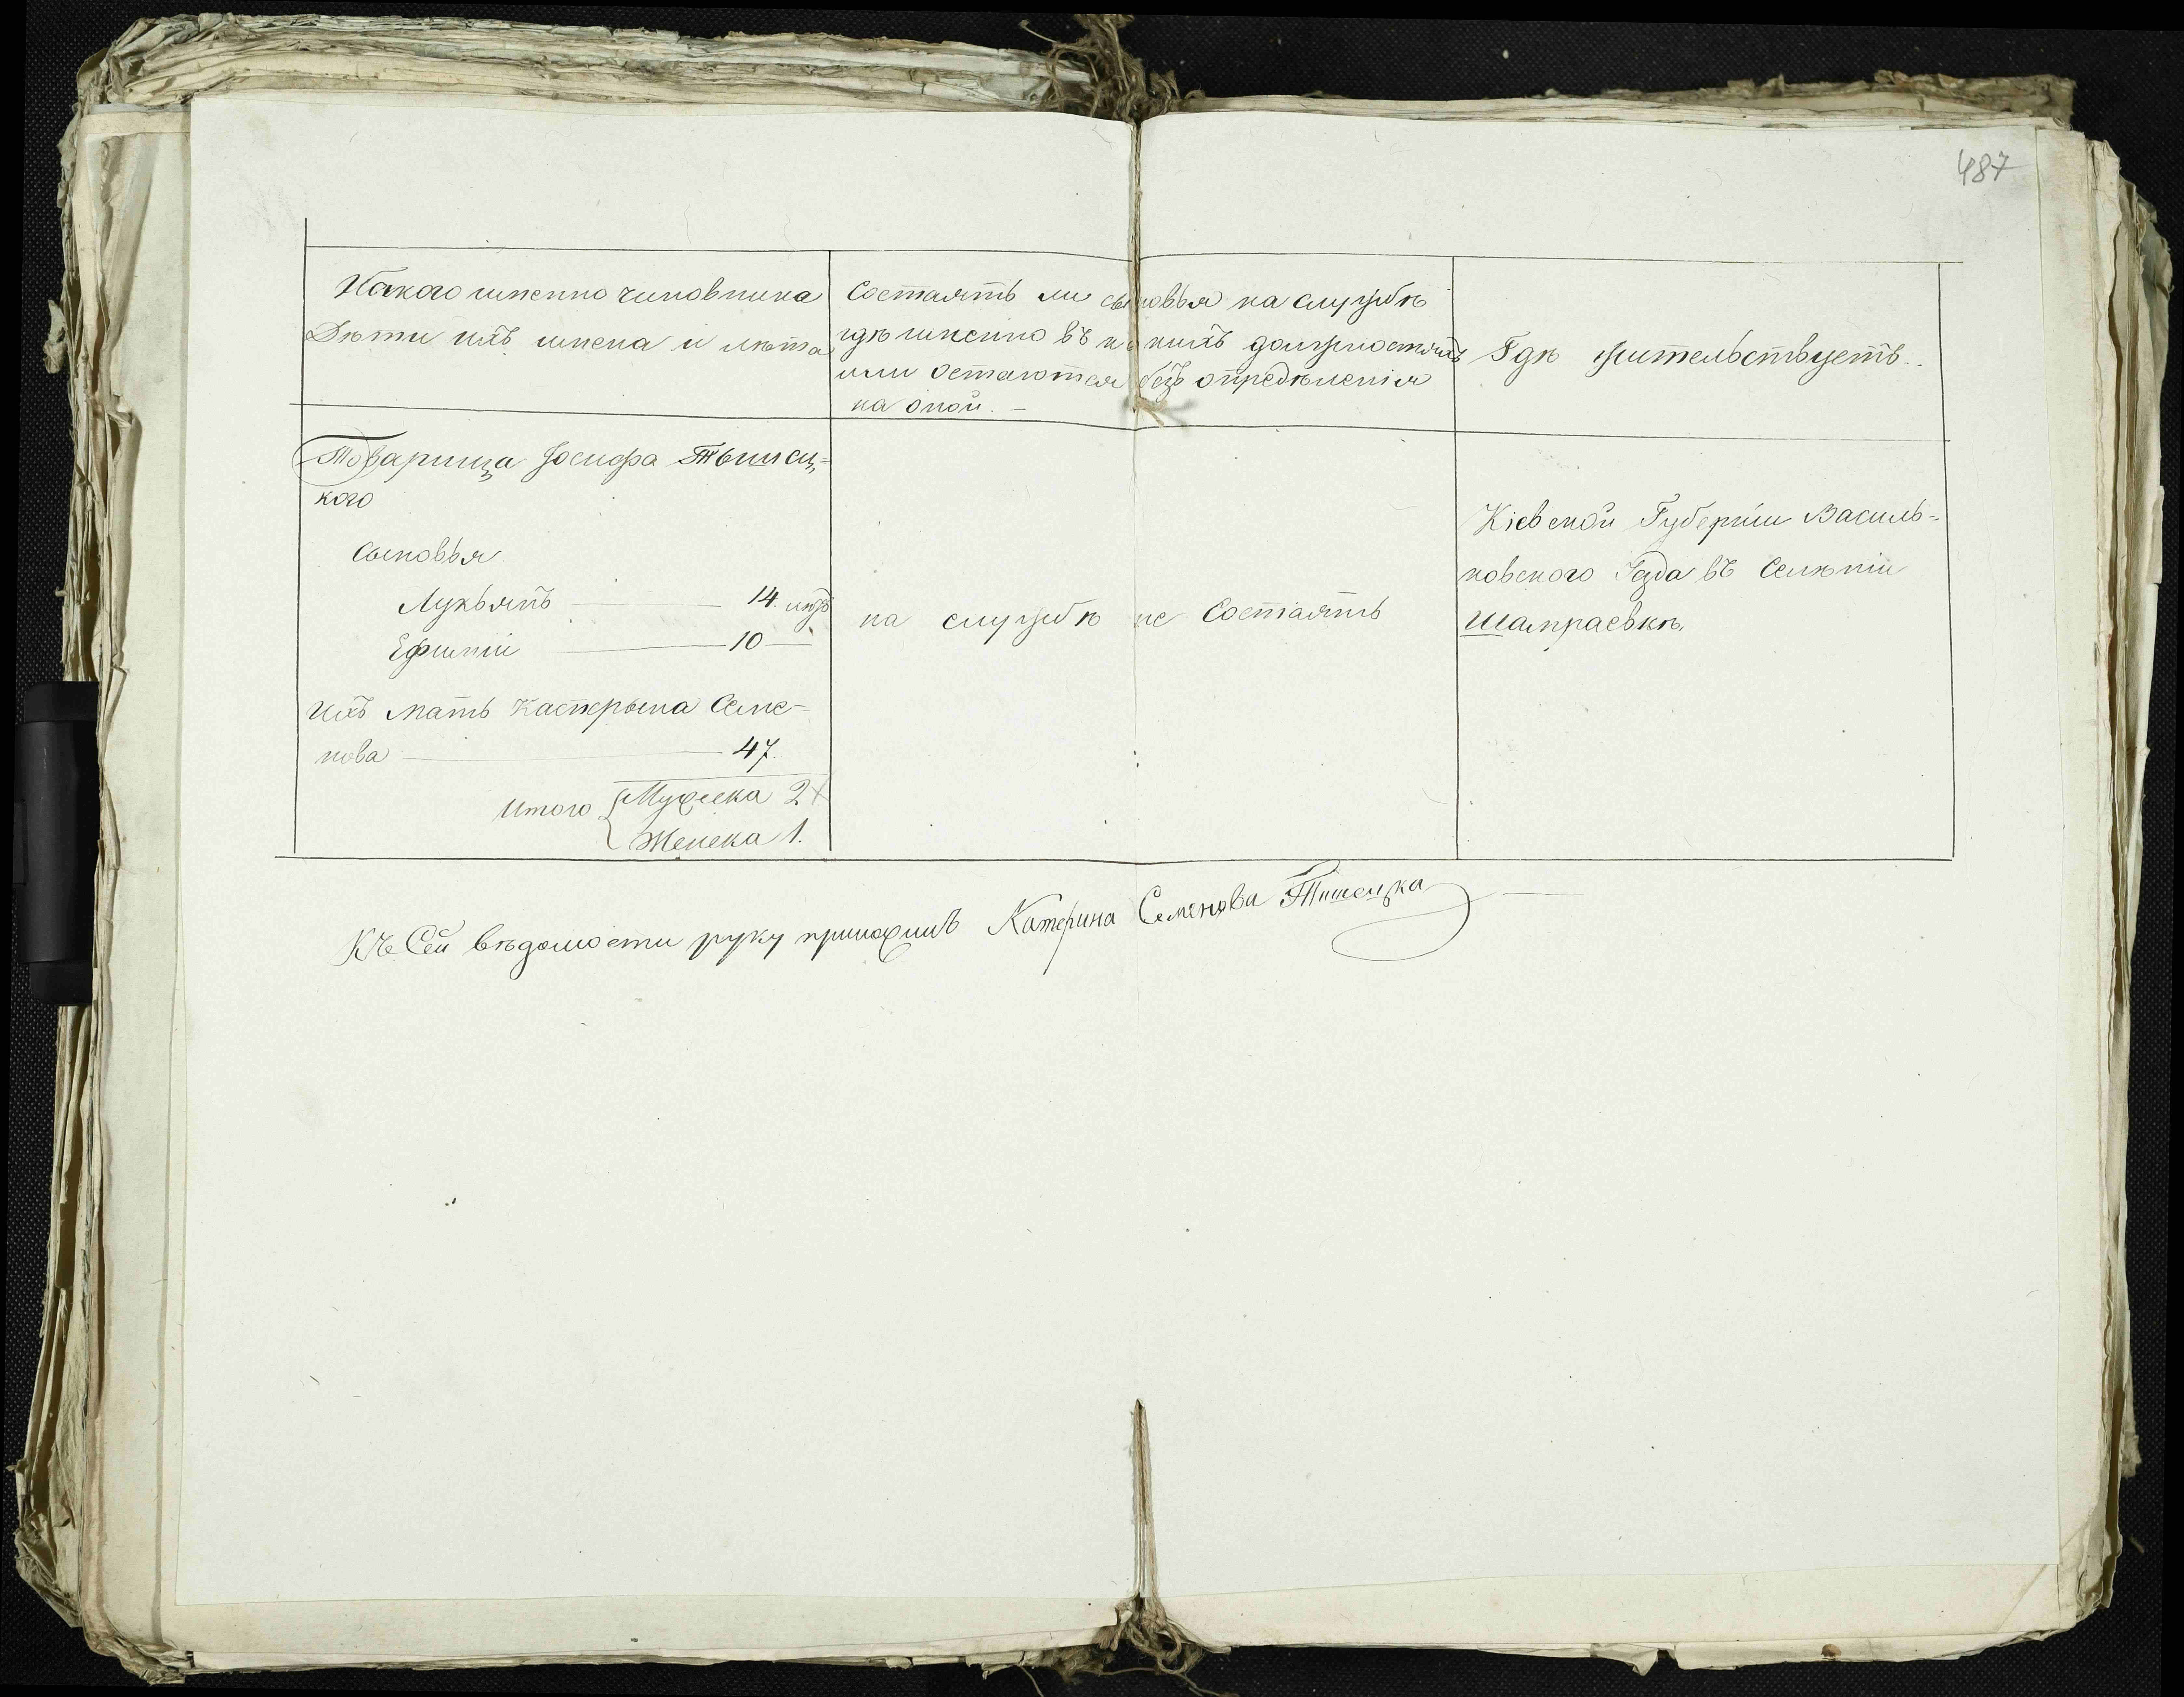 487
Какого именно чиновника
Дѣти ихъ имена и лѣта
Состаятъ ли сыновья на службѣ
гдѣ именно въ какихъ должностяхъ
или остаются безъ опредѣленія
на оной. —
Гдѣ жительствуетъ.
Товарища Іосифа Тышец=
кого
Сыновья
Лукьянъ — 14. лѣтъ
Ефимій — 10 —
ихъ мать Катерына Семе-
нова — 47.
Итого Мужеска 2
Женска 1.
на службѣ не Состаятъ
Кіевской Губерніи Василь=
ковского уезда въ Селѣніи
Шамраевкѣ,
Къ Сей вѣдомости руку приложилъ Катерина Семенова Тишецка